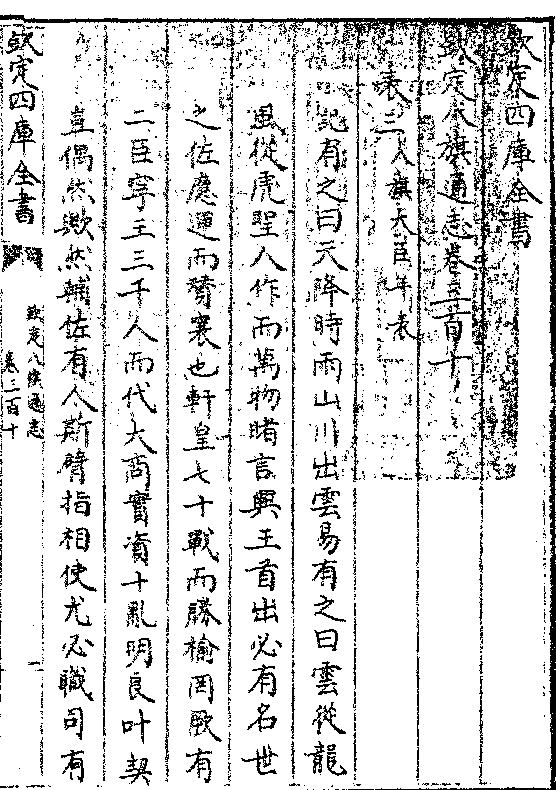 欽定四庫全書
欽定八旗通志卷三百十
表三 八旗大臣年表
記有之曰天降時雨山川出雲易有之曰雲從龍
風從虎聖人作而萬物睹言興王首出必有名世
之佐應運而贊襄也軒皇七十戰而勝榆罔厥有
二臣寧王三千人而代大商實資十亂明良叶契
豈偶然歟然輔佐有人斯臂指相使尤必職司有
欽定四庫全書
欽定八旗通志
卷三百十
一